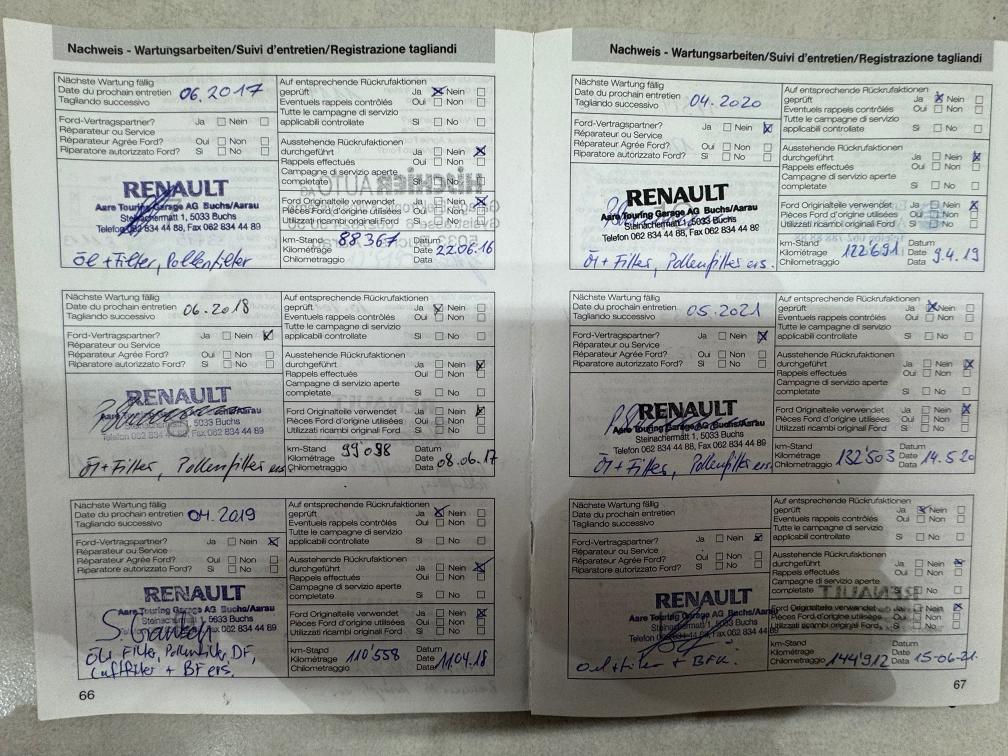 Nachweis - Wartungsarbeiten/Suivi d'entretien/Registrazione tagliandi
Nächste Wartung fällig
Date du prochain entretien 06.2017
Tagliando successivo
Ford-Vertragspartner? Ja Nein
Réparateur ou Service
Réparateur Agrée Ford? Oui Non
Riparatore autorizzato Ford? Si No
RENAULT
Aare Touring Garage AG Buchs/Aarau
Steinachermatt 1, 5033 Buchs
Telefon 062 834 44 88, Fax 062 834 44 89
Öl + Filter, Pollenfilter
Auf entsprechende Rückrufaktionen
geprüft Ja Nein
Eventuels rappels contrôlés Oui Non
Tutte le campagne di servizio
applicabili controllate Si No
Ausstehende Rückrufaktionen
durchgeführt Ja Nein
Rappels effectués Oui Non
Campagne di servizio aperte
completate Si No
Ford Originalteile verwendet Ja Nein
Pièces Ford d'origine utilisées Oui Non
Utilizzati ricambi original Ford Si No
km-Stand Datum
Kilométrage 88'367 Date 22.06.16
Chilometraggio Data
Nächste Wartung fällig
Date du prochain entretien 06.2018
Tagliando successivo
Ford-Vertragspartner? Ja Nein
Réparateur ou Service
Réparateur Agrée Ford? Oui Non
Riparatore autorizzato Ford? Si No
RENAULT
5033 Buchs
Telefon 062 834 Fax 062 834 44 89
Öl + Filter, Pollenfilter ers.
Auf entsprechende Rückrufaktionen
geprüft Ja Nein
Eventuels rappels contrôlés Oui Non
Tutte le campagne di servizio
applicabili controllate Si No
Ausstehende Rückrufaktionen
durchgeführt Ja Nein
Rappels effectués Oui Non
Campagne di servizio aperte
completate Si No
Ford Originalteile verwendet Ja Nein
Pièces Ford d'origine utilisées Oui Non
Utilizzati ricambi original Ford Si No
km-Stand 99'098 Datum
Kilométrage Date
Chilometraggio Data 08.06.17
Nächste Wartung fällig
Date du prochain entretien 04.2019
Tagliando successivo
Ford-Vertragspartner? Ja Nein
Réparateur ou Service
Réparateur Agrée Ford? Oui Non
Riparatore autorizzato Ford? Si No
RENAULT
Aare Touring Garage AG Buchs/Aarau
5033 Buchs
Fax 062 834 44 89
Öl, Filter, Pollenfilter, DF,
Luftfilter + BF ers.
Auf entsprechende Rückrufaktionen
geprüft Ja Nein
Eventuels rappels contrôlés Oui Non
Tutte le campagne di servizio
applicabili controllate Si No
Ausstehende Rückrufaktionen
durchgeführt Ja Nein
Rappels effectués Oui Non
Campagne di servizio aperte
completate Si No
Ford Originalteile verwendet Ja Nein
Pièces Ford d'origine utilisées Oui Non
Utilizzati ricambi original Ford Si No
km-Stand Datum
Kilométrage 110'558 Date
Chilometraggio Data 11.04.18
66
Nachweis - Wartungsarbeiten/Suivi d'entretien/Registrazione tagliandi
Nächste Wartung fällig
Date du prochain entretien 04.2020
Tagliando successivo
Ford-Vertragspartner? Ja Nein
Réparateur ou Service
Réparateur Agrée Ford? Oui Non
Riparatore autorizzato Ford? Si No
RENAULT
Aare Touring Garage AG Buchs/Aarau
Steinachermatt 1, 5033 Buchs
Telefon 062 834 44 88, Fax 062 834 44 89
Öl + Filter, Pollenfilter ers.
Auf entsprechende Rückrufaktionen
geprüft Ja Nein
Eventuels rappels contrôlés Oui Non
Tutte le campagne di servizio
applicabili controllate Si No
Ausstehende Rückrufaktionen
durchgeführt Ja Nein
Rappels effectués Oui Non
Campagne di servizio aperte
completate Si No
Ford Originalteile verwendet Ja Nein
Pièces Ford d'origine utilisées Oui Non
Utilizzati ricambi original Ford Si No
km-Stand Datum
Kilométrage 122'691 Date 9.4.19
Chilometraggio Data
Nächste Wartung fällig
Date du prochain entretien 05.2021
Tagliando successivo
Ford-Vertragspartner? Ja Nein
Réparateur ou Service
Réparateur Agrée Ford? Oui Non
Riparatore autorizzato Ford? Si No
RENAULT
Aare Touring Garage AG Buchs/Aarau
Steinachermatt 1, 5033 Buchs
Telefon 062 834 44 88, Fax 062 834 44 89
Öl + Filter, Pollenfilter ers.
Auf entsprechende Rückrufaktionen
geprüft Ja Nein
Eventuels rappels contrôlés Oui Non
Tutte le campagne di servizio
applicabili controllate Si No
Ausstehende Rückrufaktionen
durchgeführt Ja Nein
Rappels effectués Oui Non
Campagne di servizio aperte
completate Si No
Ford Originalteile verwendet Ja Nein
Pièces Ford d'origine utilisées Oui Non
Utilizzati ricambi original Ford Si No
km-Stand Datum
Kilométrage 132'503 Date 14.5.20
Chilometraggio Data
Nächste Wartung fällig
Date du prochain entretien
Tagliando successivo
Ford-Vertragspartner? Ja Nein
Réparateur ou Service
Réparateur Agrée Ford? Oui Non
Riparatore autorizzato Ford? Si No
RENAULT
Aare Touring Garage AG Buchs/Aarau
Steinachermatt 1, 5033 Buchs
Telefon 062 834 44 88, Fax 062 834 44 89
Oel + Filter + BFK.
Auf entsprechende Rückrufaktionen
geprüft Ja Nein
Eventuels rappels contrôlés Oui Non
Tutte le campagne di servizio
applicabili controllate Si No
Ausstehende Rückrufaktionen
durchgeführt Ja Nein
Rappels effectués Oui Non
Campagne di servizio aperte
completate Si No
Ford Originalteile verwendet Ja Nein
Pièces Ford d'origine utilisées Oui Non
Utilizzati ricambi original Ford Si No
km-Stand Datum
Kilométrage Date
Chilometraggio 144'912 Data 15-06-21
67